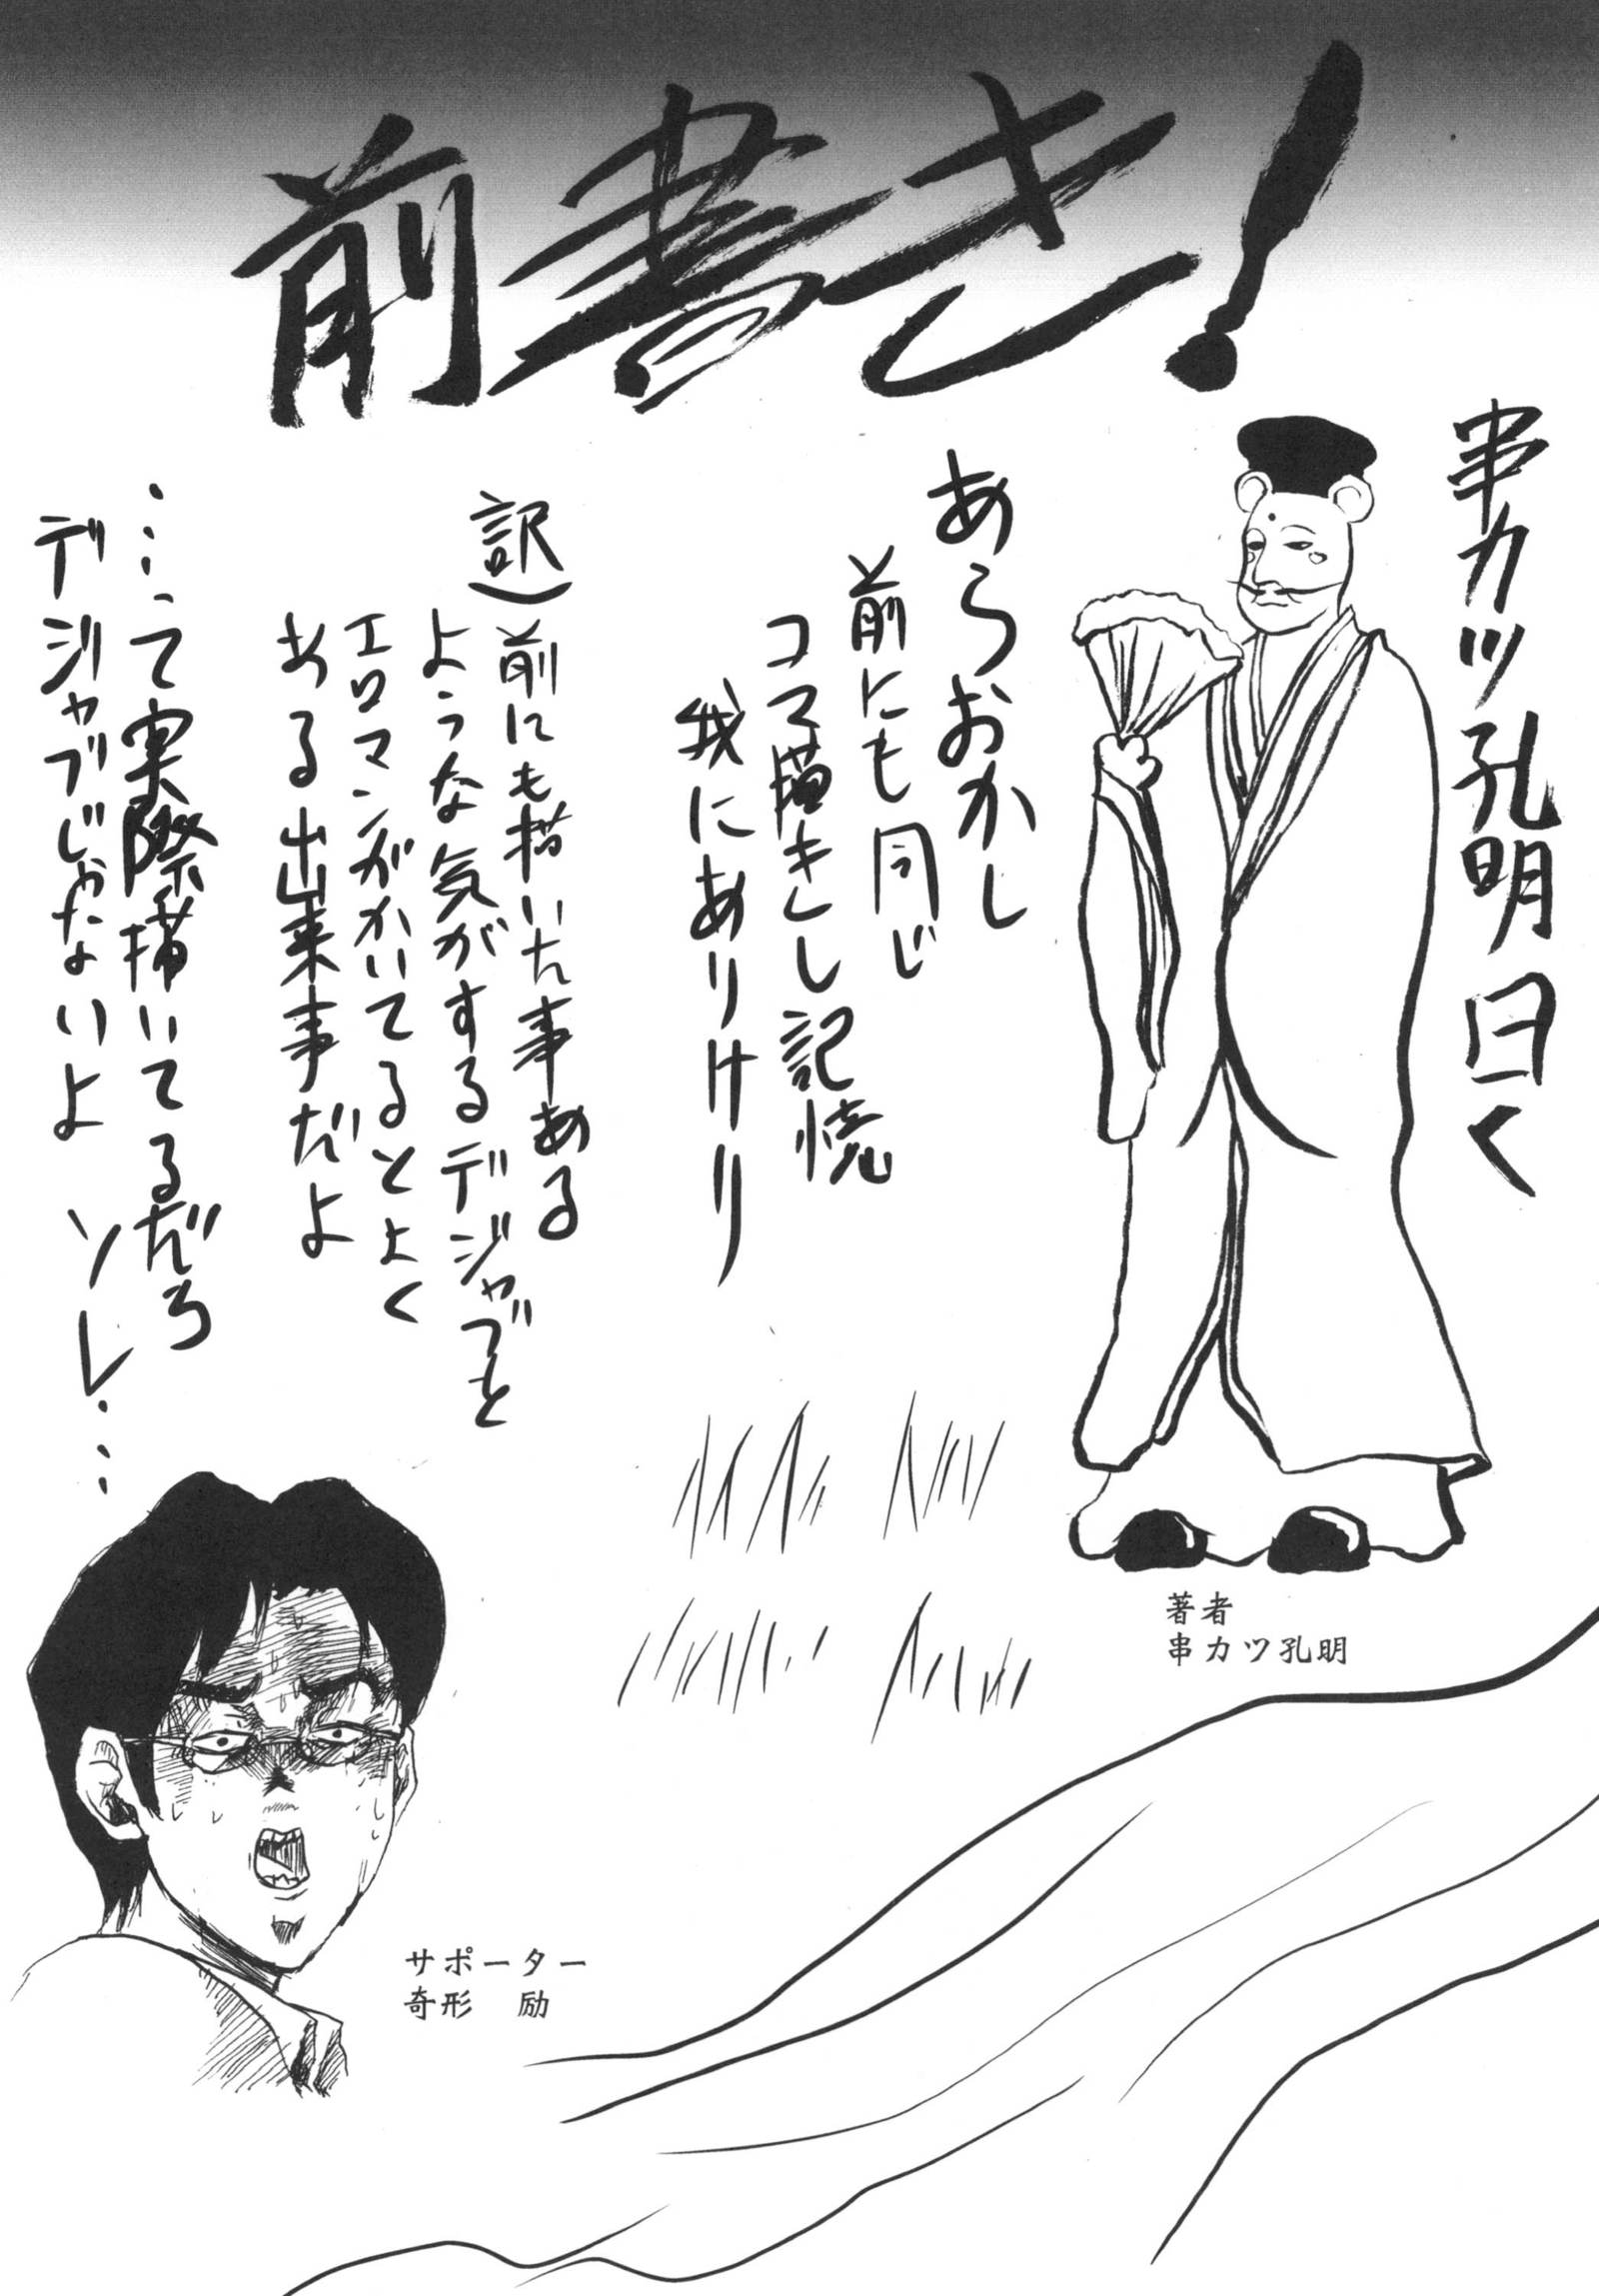 前書き!
串カツ孔明曰く
あらおかし
前にも同じ
コマ描きし記憶
我にありけり
訳)前にも描いた事ある
ような気がするデジャブも
エロマンがかいてるとよく
ある出来事だよ
……て実際描いてるだろ
デジャブじゃないよ ソレ……
著者
串カツ孔明
サポーター
奇形 励